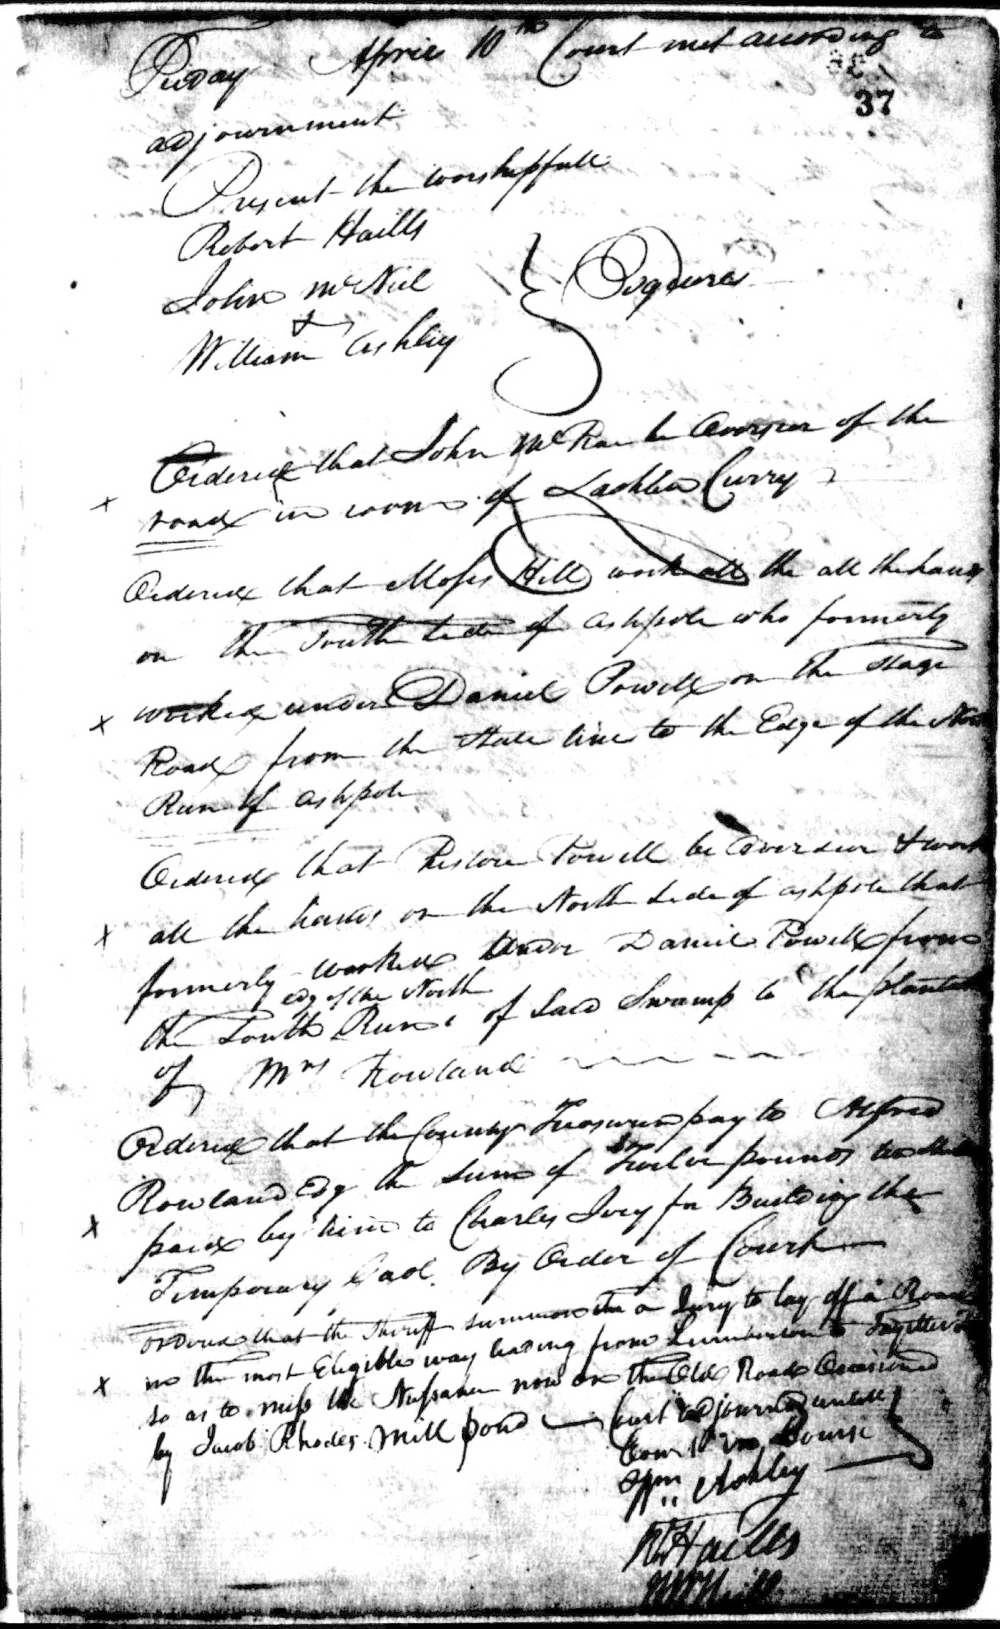 Friday April 10th Court met according to
37
adjournment
Present the worshipfull
Robert Haills
John McNiel
&
William Ashley
Esquires
Ordered that John McRae be Overseer of the
road in room of Lachlin Curry
Ordered that Moses Hill work all the all the hands
on the South Side of ashpole who formerly
worked under Daniel Powell on the Stage
Road from the State line to the Edge of the North
Run of ashpole
Ordered that Powell be Overseer & work
all the hands on the North Side of ashpole that
formerly worked Under Daniel Powell from
edg of the North
the South Run of Said Swamp to the plantation
of Mrs Rowland
Ordered that the County Treasurer pay to Alfred
Rowland Esq the Sum of Twelve pounds
paid by him to Charles Ivey for Building the
Temporary Gaol. By Order of Court
Ordered that the Sheriff summon the a Jury to lay off a Road
in the most Eligible way leading from Lumberton to
so as to miss the now on the Old Road Occasioned
by Jacob Rhodes Mill pond — Court adjourned untill
Court in Course
Wm Ashley
Rt Haills